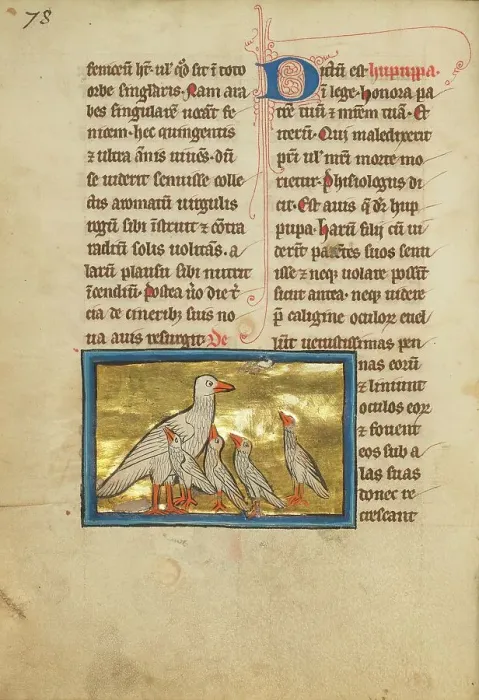 78
feniceū hr̄. ul' qd̄ sit ī toto
orbe singlaris. Nam ara
bes singularē uocāt fe
nicem. hec quingentis
⁊ ultra ānis uiuēs. dū
se uiderit senuisse colle
ctis aromatū uirgulis
rogū sibi īstruit ⁊ cōtra
radiū solis uolitās. a
larū plausu sibi nutrit
īcendiū. Postea u͛o die t͛
cia de cinerib; suis no
ua auis resurgit. De
Dictū est hupupa.
ī lege. honora pa
trē tuū ⁊ m̄rem tuā. Et
iterū. Qui maledixerit
pr̄i ul' mr̄i morte mo
rietur. Phisiologus di
cit. Est auis q̄ dr̄ hup
pupa. harū filii cū ui
derīt parētes suos senu
isse ⁊ neq; uolare possīt
sicut antea. neq; uidere
p̄ caligine oculoꝝ euel
lūt uetustissimas pen
nas eorū
⁊ liniunt
oculos eoꝝ
⁊ fouent
eos sub a
las suas
donec re
crescant